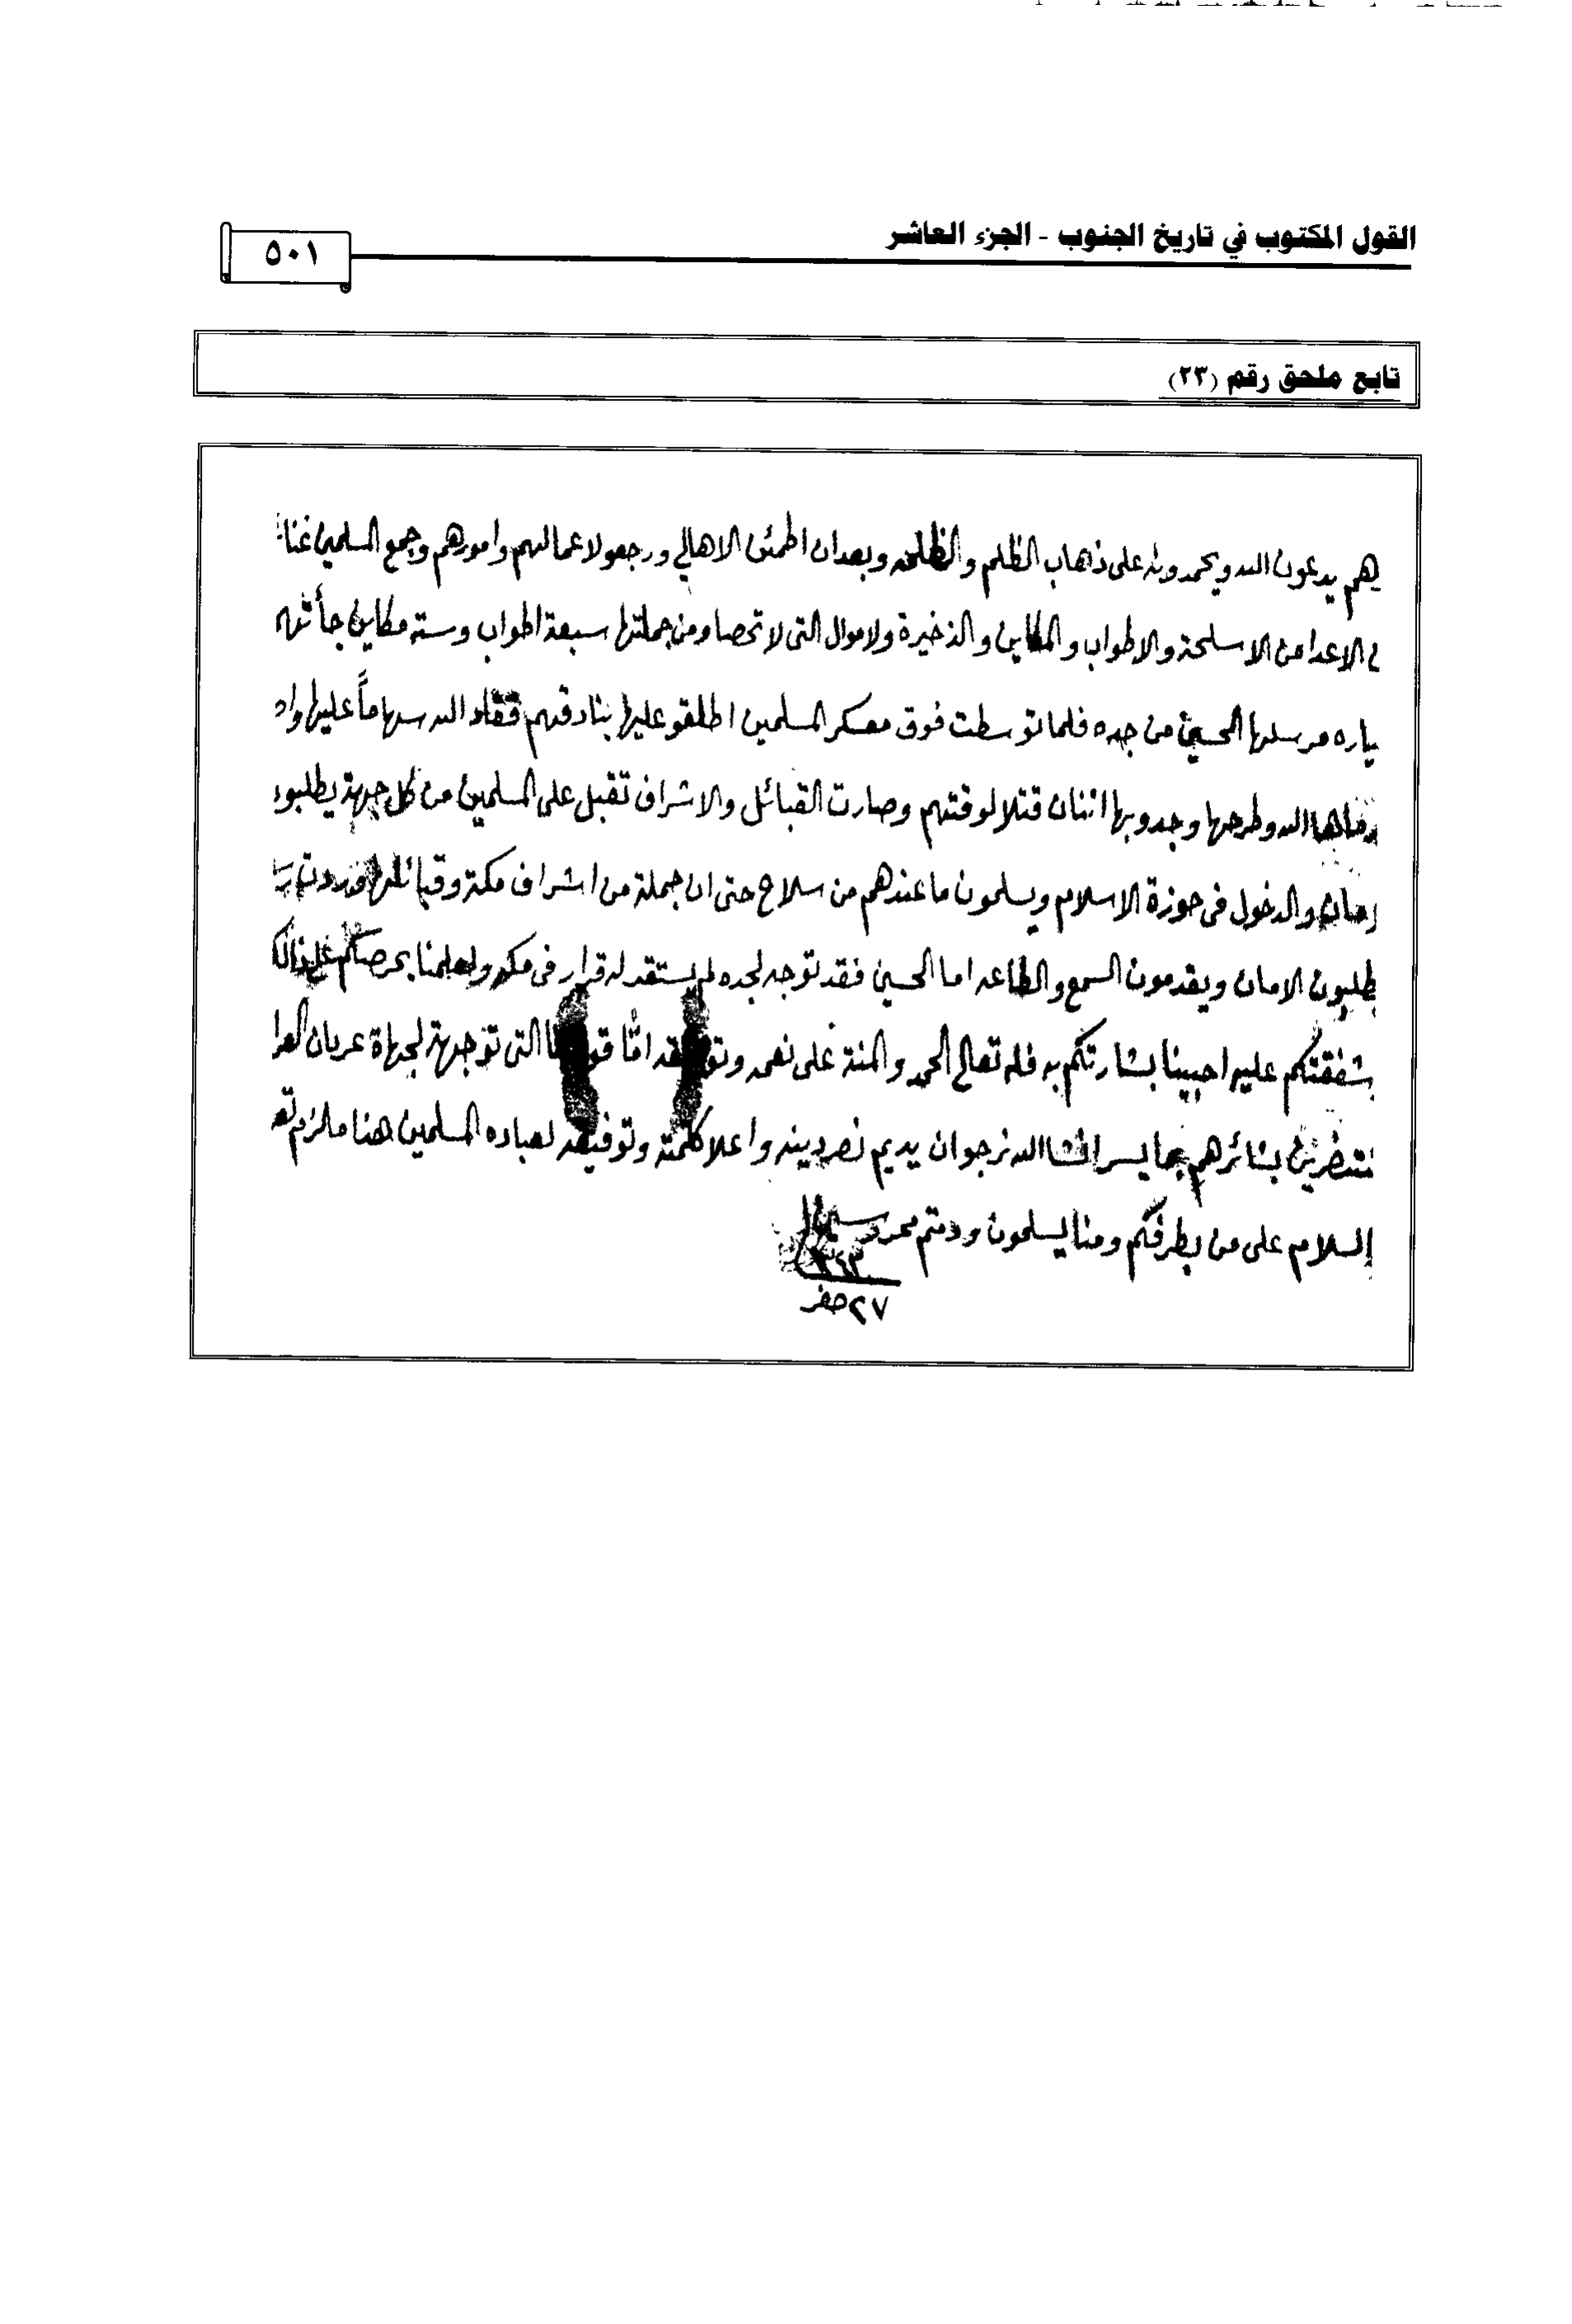 القول المكتوب في تاريخ الجنوب - الجزء العاشر
٥٠١
تابع ملحق رقم (٢٣)
يهم يدعون الله ويحمدونه على ذهاب الظلم والظلمه وبعد ان اطمئن الاهالي ورجعو لاعمالهم وامورهم وجمع المسلمين غنا
الاعدا من الاسلحة والاطواب والمكاين والذخيرة ولاموال التى لا تحصا ومن جملتها سبعة اطواب وستة مكاين جأتهم
ياره مرسلها الحسين من جده فلما توسطت فوق معسكر المسلمين اطلقو عليها بنادقهم فقاد الله سهاماً عليها واد
الله وطرحها وجدو بها اثنان قتلا لوقتهم وصارت القبائل والاشراف تقبل على المسلمين من كل جهة يطلبون
والدخول فى حوزة الاسلام ويسلمون ما عندهم من سلاح حتى ان جملة من اشراف مكة وقبائلها
يطلبون الامان ويقدمون السمع والطاعه اما الحسين فقد توجه لجده لم يستقد له قرار فى مكه ولعلمنا بحرصكم على ذالك
شفقتكم عليه احبينا بشارتكم به فله تعالى الحمد والمنة على نعمه امّا التى توجهة لجهاة عربان
بشائرهم بما يسر انشا الله نرجوا ان يديم نصر دينه واعلا كلمته وتوفيقه لعباده المسلمين هنا ما لزم
السلام على من بطرفكم ومنا يسلمون ودمتم محروسين
٢٧ صفر